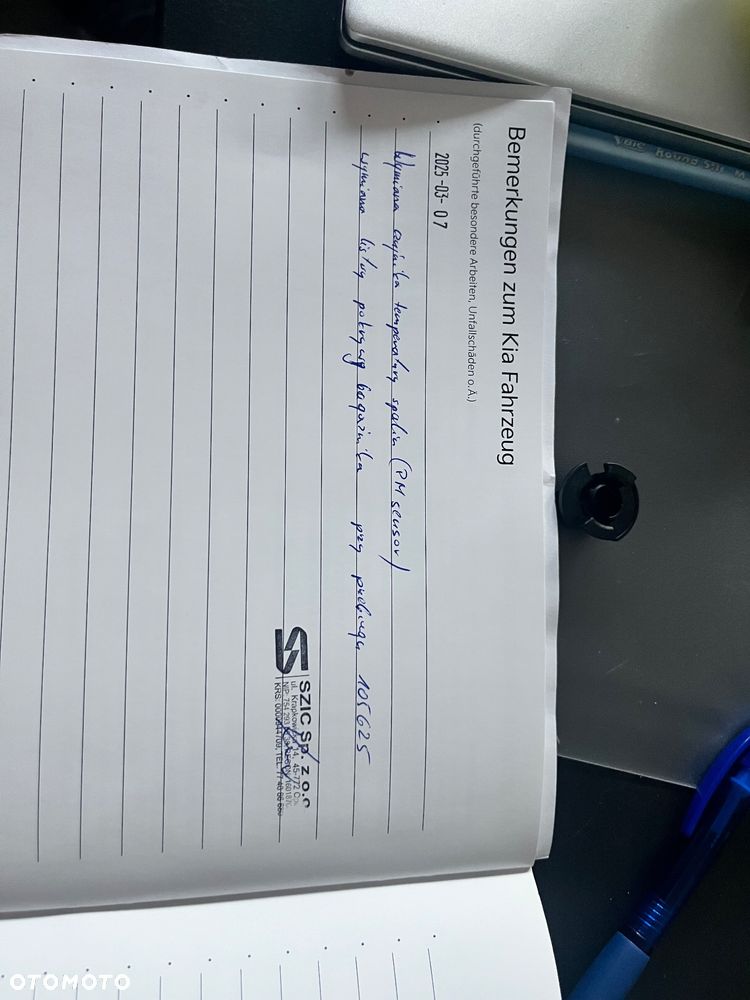 Bemerkungen zum Kia Fahrzeug
(durchgeführte besondere Arbeiten, Unfallschäden o.Ä.)
2025-03-07
Wymiana czujnika temperatury spalin (PM sensor)
wymiana listwy pokrywy bagażnika przy przebiegu 105625
SZIC Sp. z o.o
ul. Krapkowicka 14, 45-772
NIP: 754 293
KRS: TEL. 77 40
BIC Round Stic M
OTOMOTO